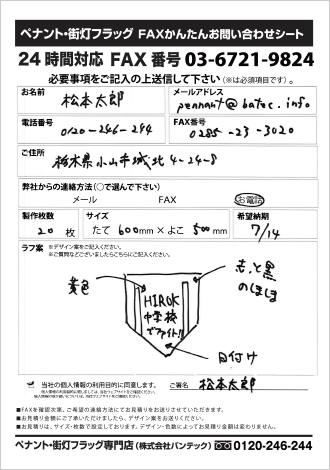 ペナント・街灯フラッグ FAXかんたんお問い合わせシート
24時間対応 FAX番号 03-6721-9824
必要事項をご記入の上送信して下さい（※は必須項目です）。
お名前
松本太郎
メールアドレス
pennant@batec.info
電話番号
0120-246-244
FAX番号
0285-23-3020
ご住所
栃木県小山市城北4-24-8
弊社からの連絡方法（○で選んで下さい）
メール FAX お電話
製作枚数
20枚
サイズ
たて600mm×よこ500mm
希望納期
7/14
ラフ案
※デザイン案をご記入ください。
※ご質問などございましたらこちらにご記入ください。
黄色
赤と黒
のほほ
HIROK
中学校
でファイト!!
日付け
当社の個人情報の利用目的に同意し、
ご署名 松本太郎
■FAXを確認次第、ご希望の連絡方法にてお見積りをお送りさせていただきます。
■お見積り金額にてご了承いただけましたら、デザイン案をお送りください。
■お見積りは、サイズ・枚数で設定しております。デザイン・色数によってお見積り金額は変わりません。
ペナント・街灯フラッグ専門店（株式会社バンテック） 0120-246-244